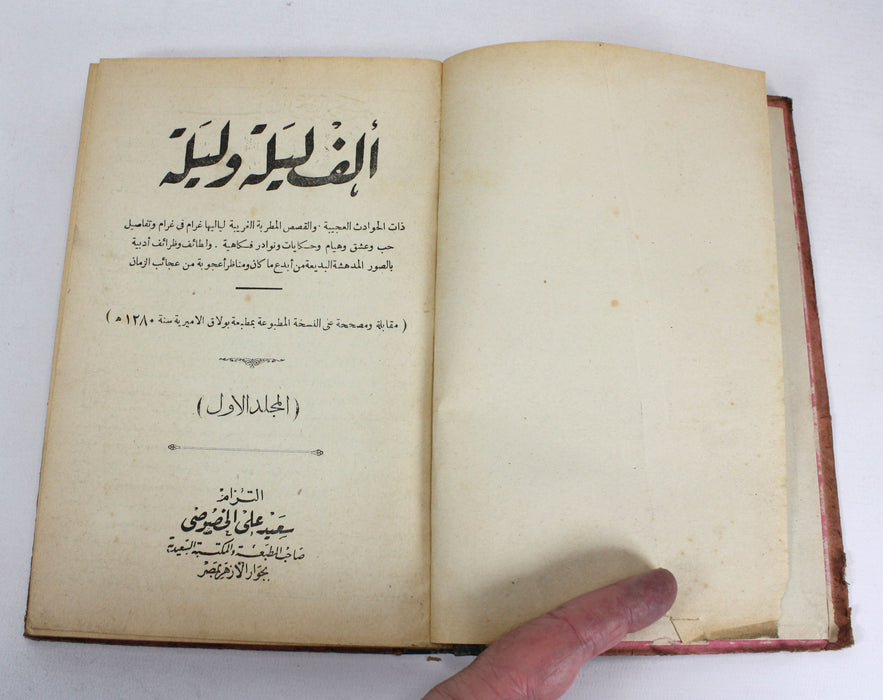 ألف ليلة وليلة
ذات الحوادث العجيبة . والقصص المطربة الغريبة لياليها غرام فى غرام وتفاصيل
حب وعشق وهيام وحكايات ونوادر فكاهية . ولطائف وظرائف أدبية
بالصور المدهشة البديعة من أبدع ما كان ومناظر أعجوبة من عجائب الزمان
( مقابلة ومصححة على النسخة المطبوعة بمطبعة بولاق الاميرية سنة ١٢٨٠ ه )
( المجلد الاول )
التزام
سعيد على الخصوصى
صاحب المطبعة والمكتبة السعيدية
بجوار الازهر بمصر